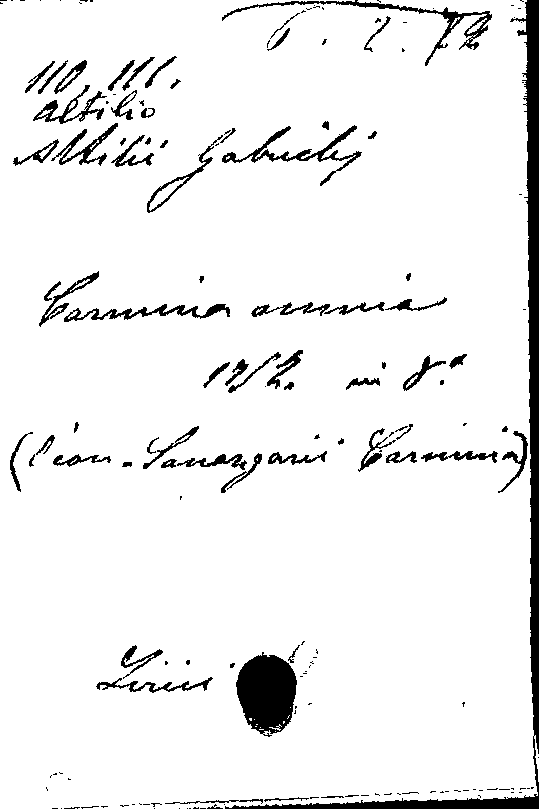 6. 2. 72
110, 111.
Altilio
Altilii Gabrielis
Carmina omnia
1752. in 8.°
(Sanazarii Carmina)
Lirici